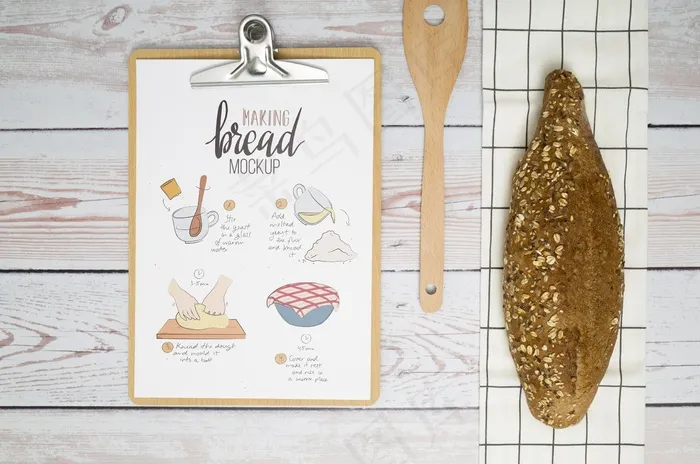 MAKING
bread
MOCKUP
1
Stir
the yeast
in a glass
of warm
water
2
Add
melted
yeast to
the flour
and knead
it
3-5 min
3
Knead the dough
and mould it
into a ball
4
Cover and
make it rest
and rise in
a warm place